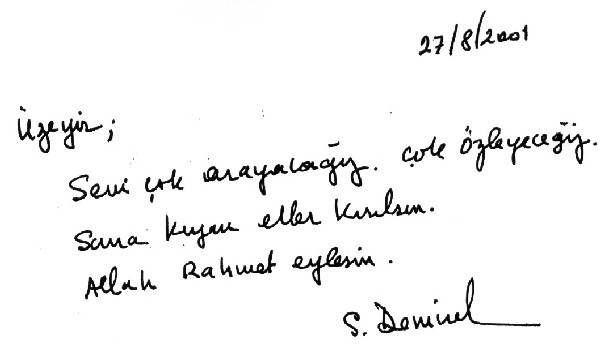 27/8/2001
Üzeyir;
Seni çok arayacağız. çok özleyeceğiz.
Sana kıyan eller kırılsın.
Allah Rahmet eylesin.
S. Demirel